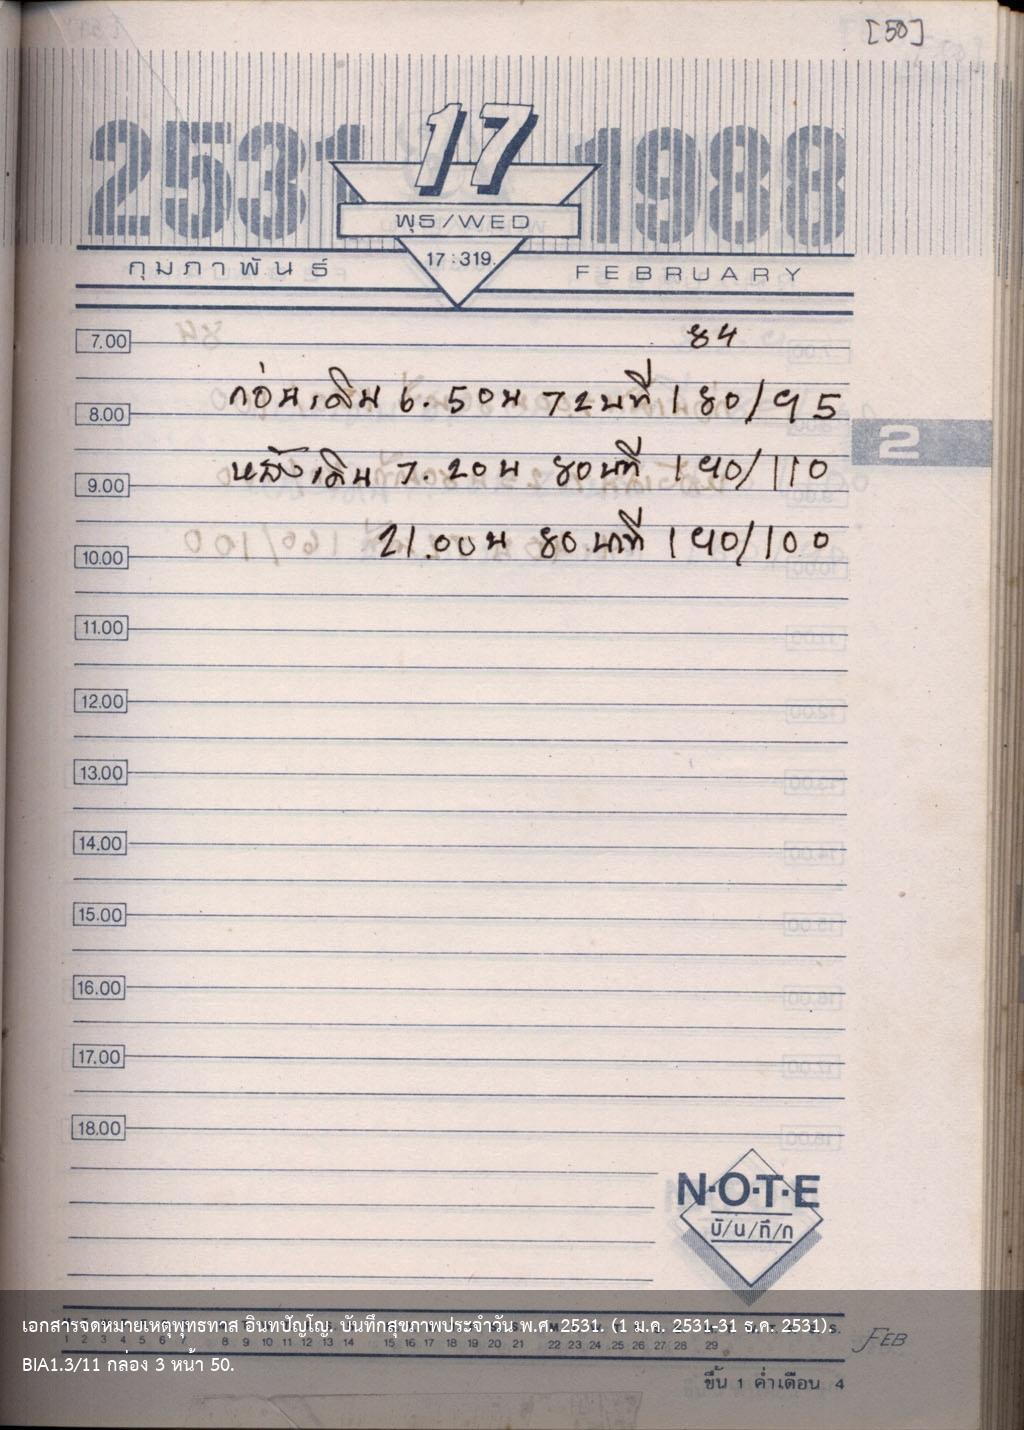 [50]
2531 17 1988
พุธ/WED
17:319.
กุมภาพันธ์ FEBRUARY
7.00 84
ก่อนเดิน 6.50น 72นที่ 180/95
8.00
2
หลังเดิน 7.20น 80นที่ 190/110
9.00
21.00น 80นาที่ 190/100
10.00
11.00
12.00
13.00
14.00
15.00
16.00
17.00
18.00
N·O·T·E
บั/น/ทึ/ก
เอกสารจดหมายเหตุพุทธทาส อินทปัญโญ. บันทึกสุขภาพประจำวัน พ.ศ. 2531. (1 ม.ค. 2531-31 ธ.ค. 2531).
1 2 3 4 5 6 7 8 9 10 11 12 13 14 15 16 17 18 19 20 21 22 23 24 25 26 27 28 29
FEB
BIA1.3/11 กล่อง 3 หน้า 50.
ขึ้น 1 ค่ำเดือน 4